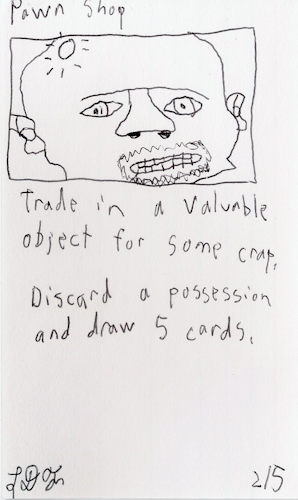 Pawn Shop
Trade in a valuable
object for some crap.
Discard a possession
and draw 5 cards.
2/5